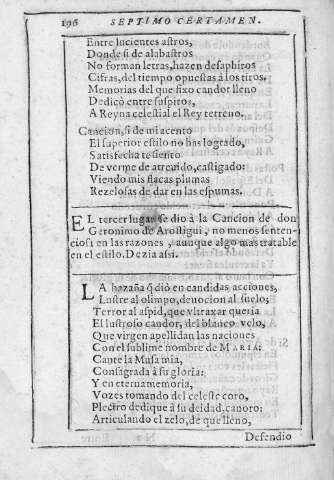 196 SEPTIMO CERTAMEN.
Entre lucientes astros,
Donde si de alabastros
No forman letras, hazen de safiros
Cifras, del tiempo opuestas à los tiros,
Memorias del que fixo candor lleno
Dedicò entre suspiros,
A Reyna celestial el Rey terreno.
Cancion, si de mi acento
El superior estilo no has logrado,
Satisfecha te siento
De verme de atreuido, castigado:
Viendo mis flacas plumas
Rezelosas de dar en las espumas.
EL tercer lugar se dio à la Cancion de don
Geronimo de Arostigui, no menos senten-
ciosa en las razones, aunque algo mas tratable
en el estilo. Dezia assi.
LA hazaña q̃ diò en candidas acciones,
Lustre al olimpo, deuocion al suelo;
Terror al aspid, que vltraxar queria
El lustroso candor, del blanco velo,
Que virgen apellidan las naciones
Con el sublime nombre de MARIA:
Cante la Musa mia,
Consagrada à su gloria:
Y en eterna memoria,
Vozes tomando del celeste coro,
Plectro dedique à su deidad, canoro:
Articulando el zelo, de que lleno,
Defendio